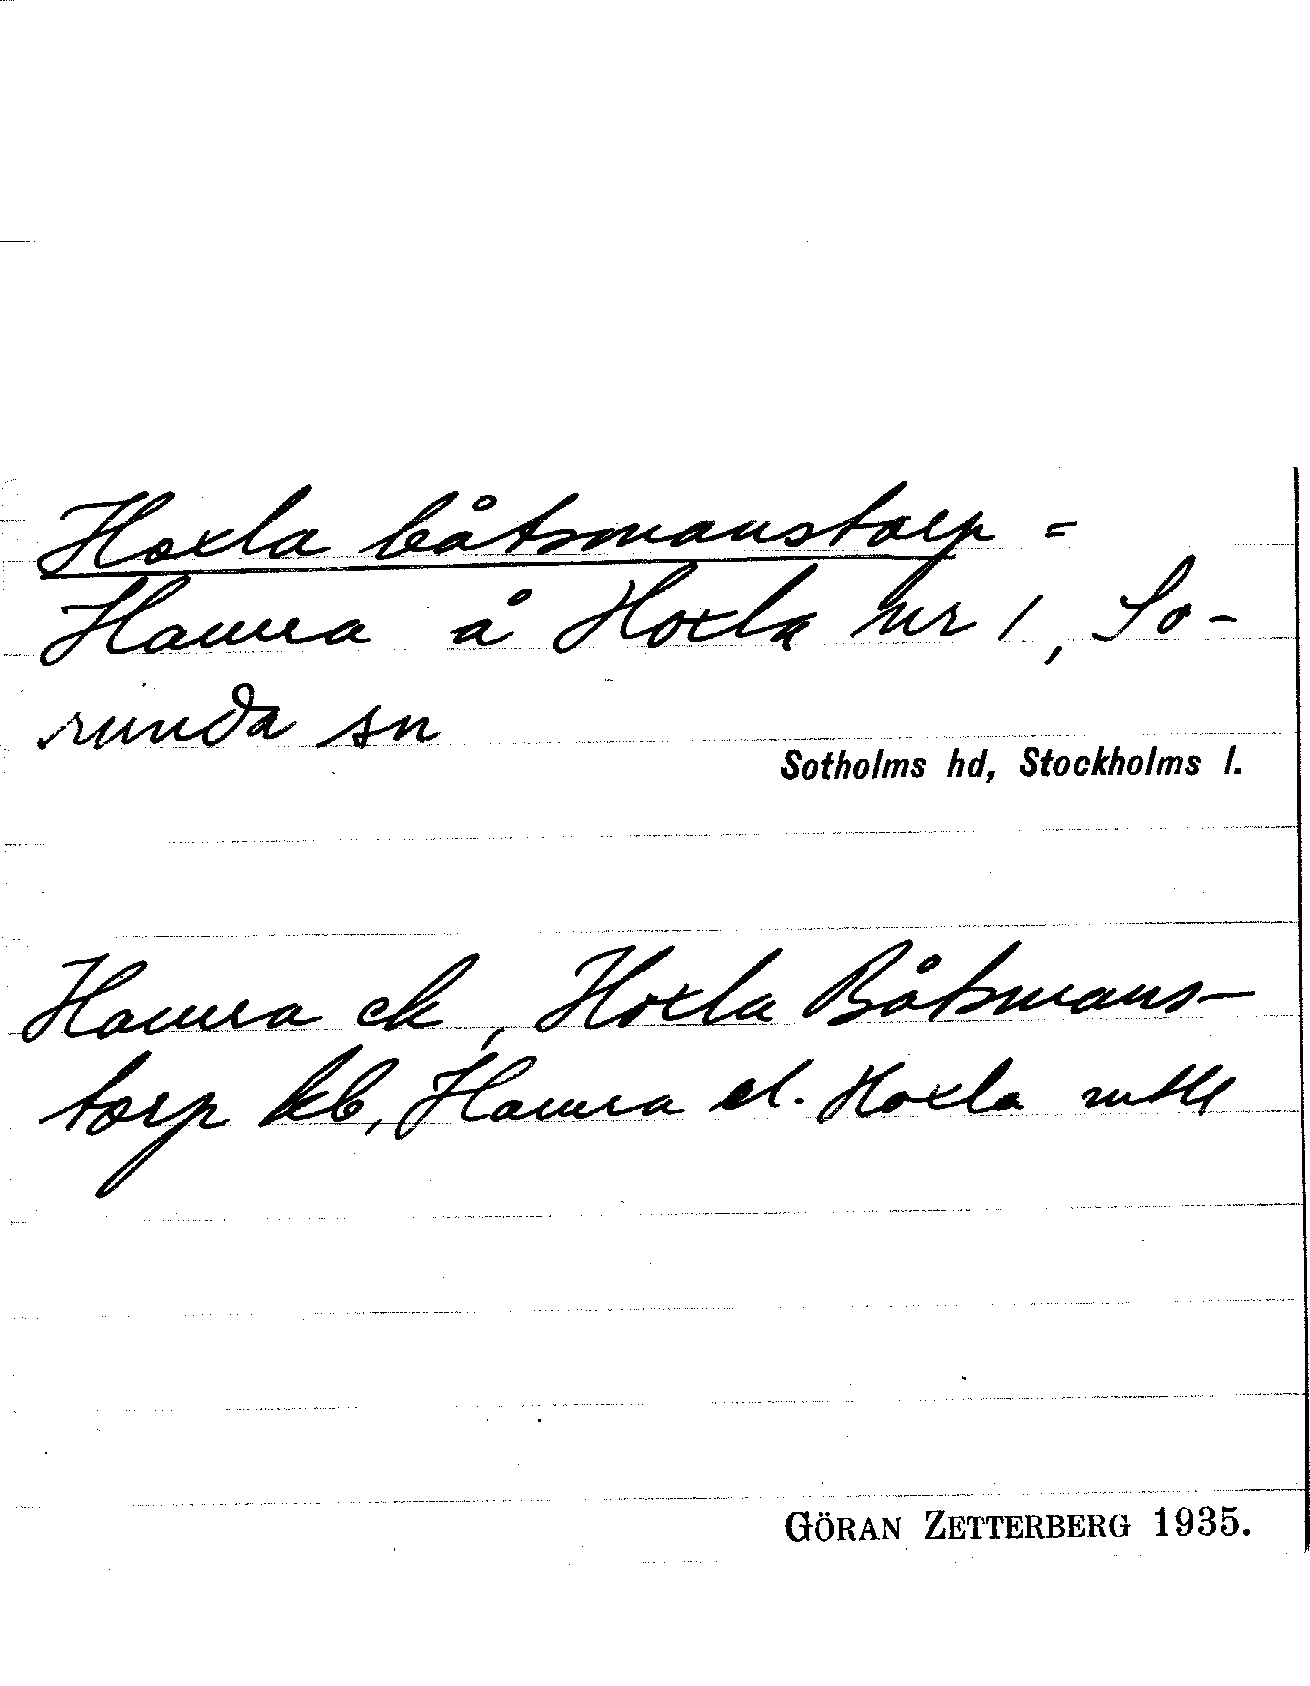 Hoxla båtsmanstorp =
Hamra å Hoxla nr 1, So-
runda sn
Sotholms hd, Stockholms l.
Hamra ek, Hoxla Båtsmans-
torp kb, Hamra el. Hoxla
GÖRAN ZETTERBERG 1935.